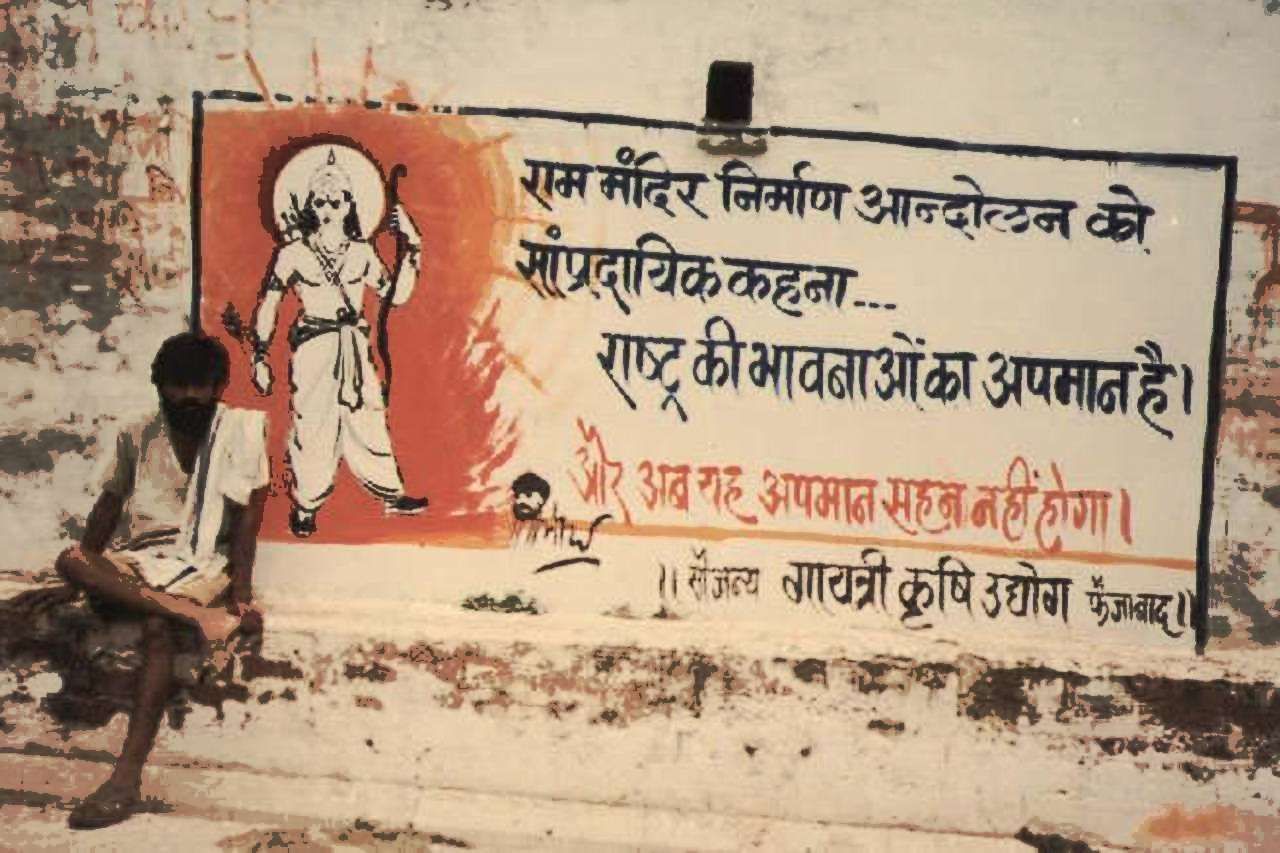 राम मंदिर निर्माण आन्दोलन को
सांप्रदायिक कहना...
राष्ट्र की भावनाओं का अपमान है।
और अब यह अपमान सहन नहीं होगा।
।। सौजन्य गायत्री कृषि उद्योग फैजाबाद।।